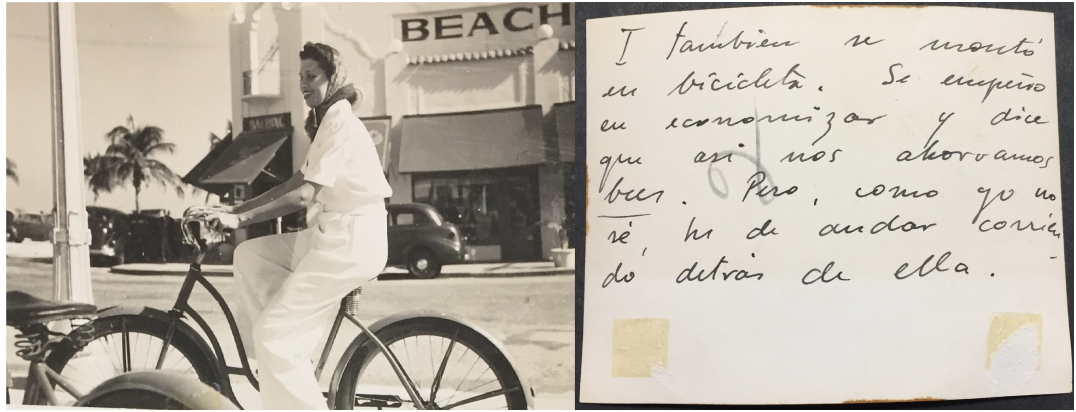 BEACH
I también se montó
en bicicleta. Se empeño
en economizar y dice
que asi nos ahorramos
bus. Pero, como yo no
sé, he de andar corrien
do detrás de ella.